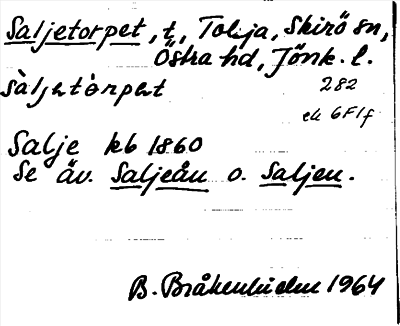 Saljetorpet, t, Tolja, Skirö sn,
Östra hd, Jönk. l.
sàljetòrpet 282
ek 6F1f
Salje kb 1860
Se äv. Saljeån o. Saljen.
B. Bråkenhielm 1964